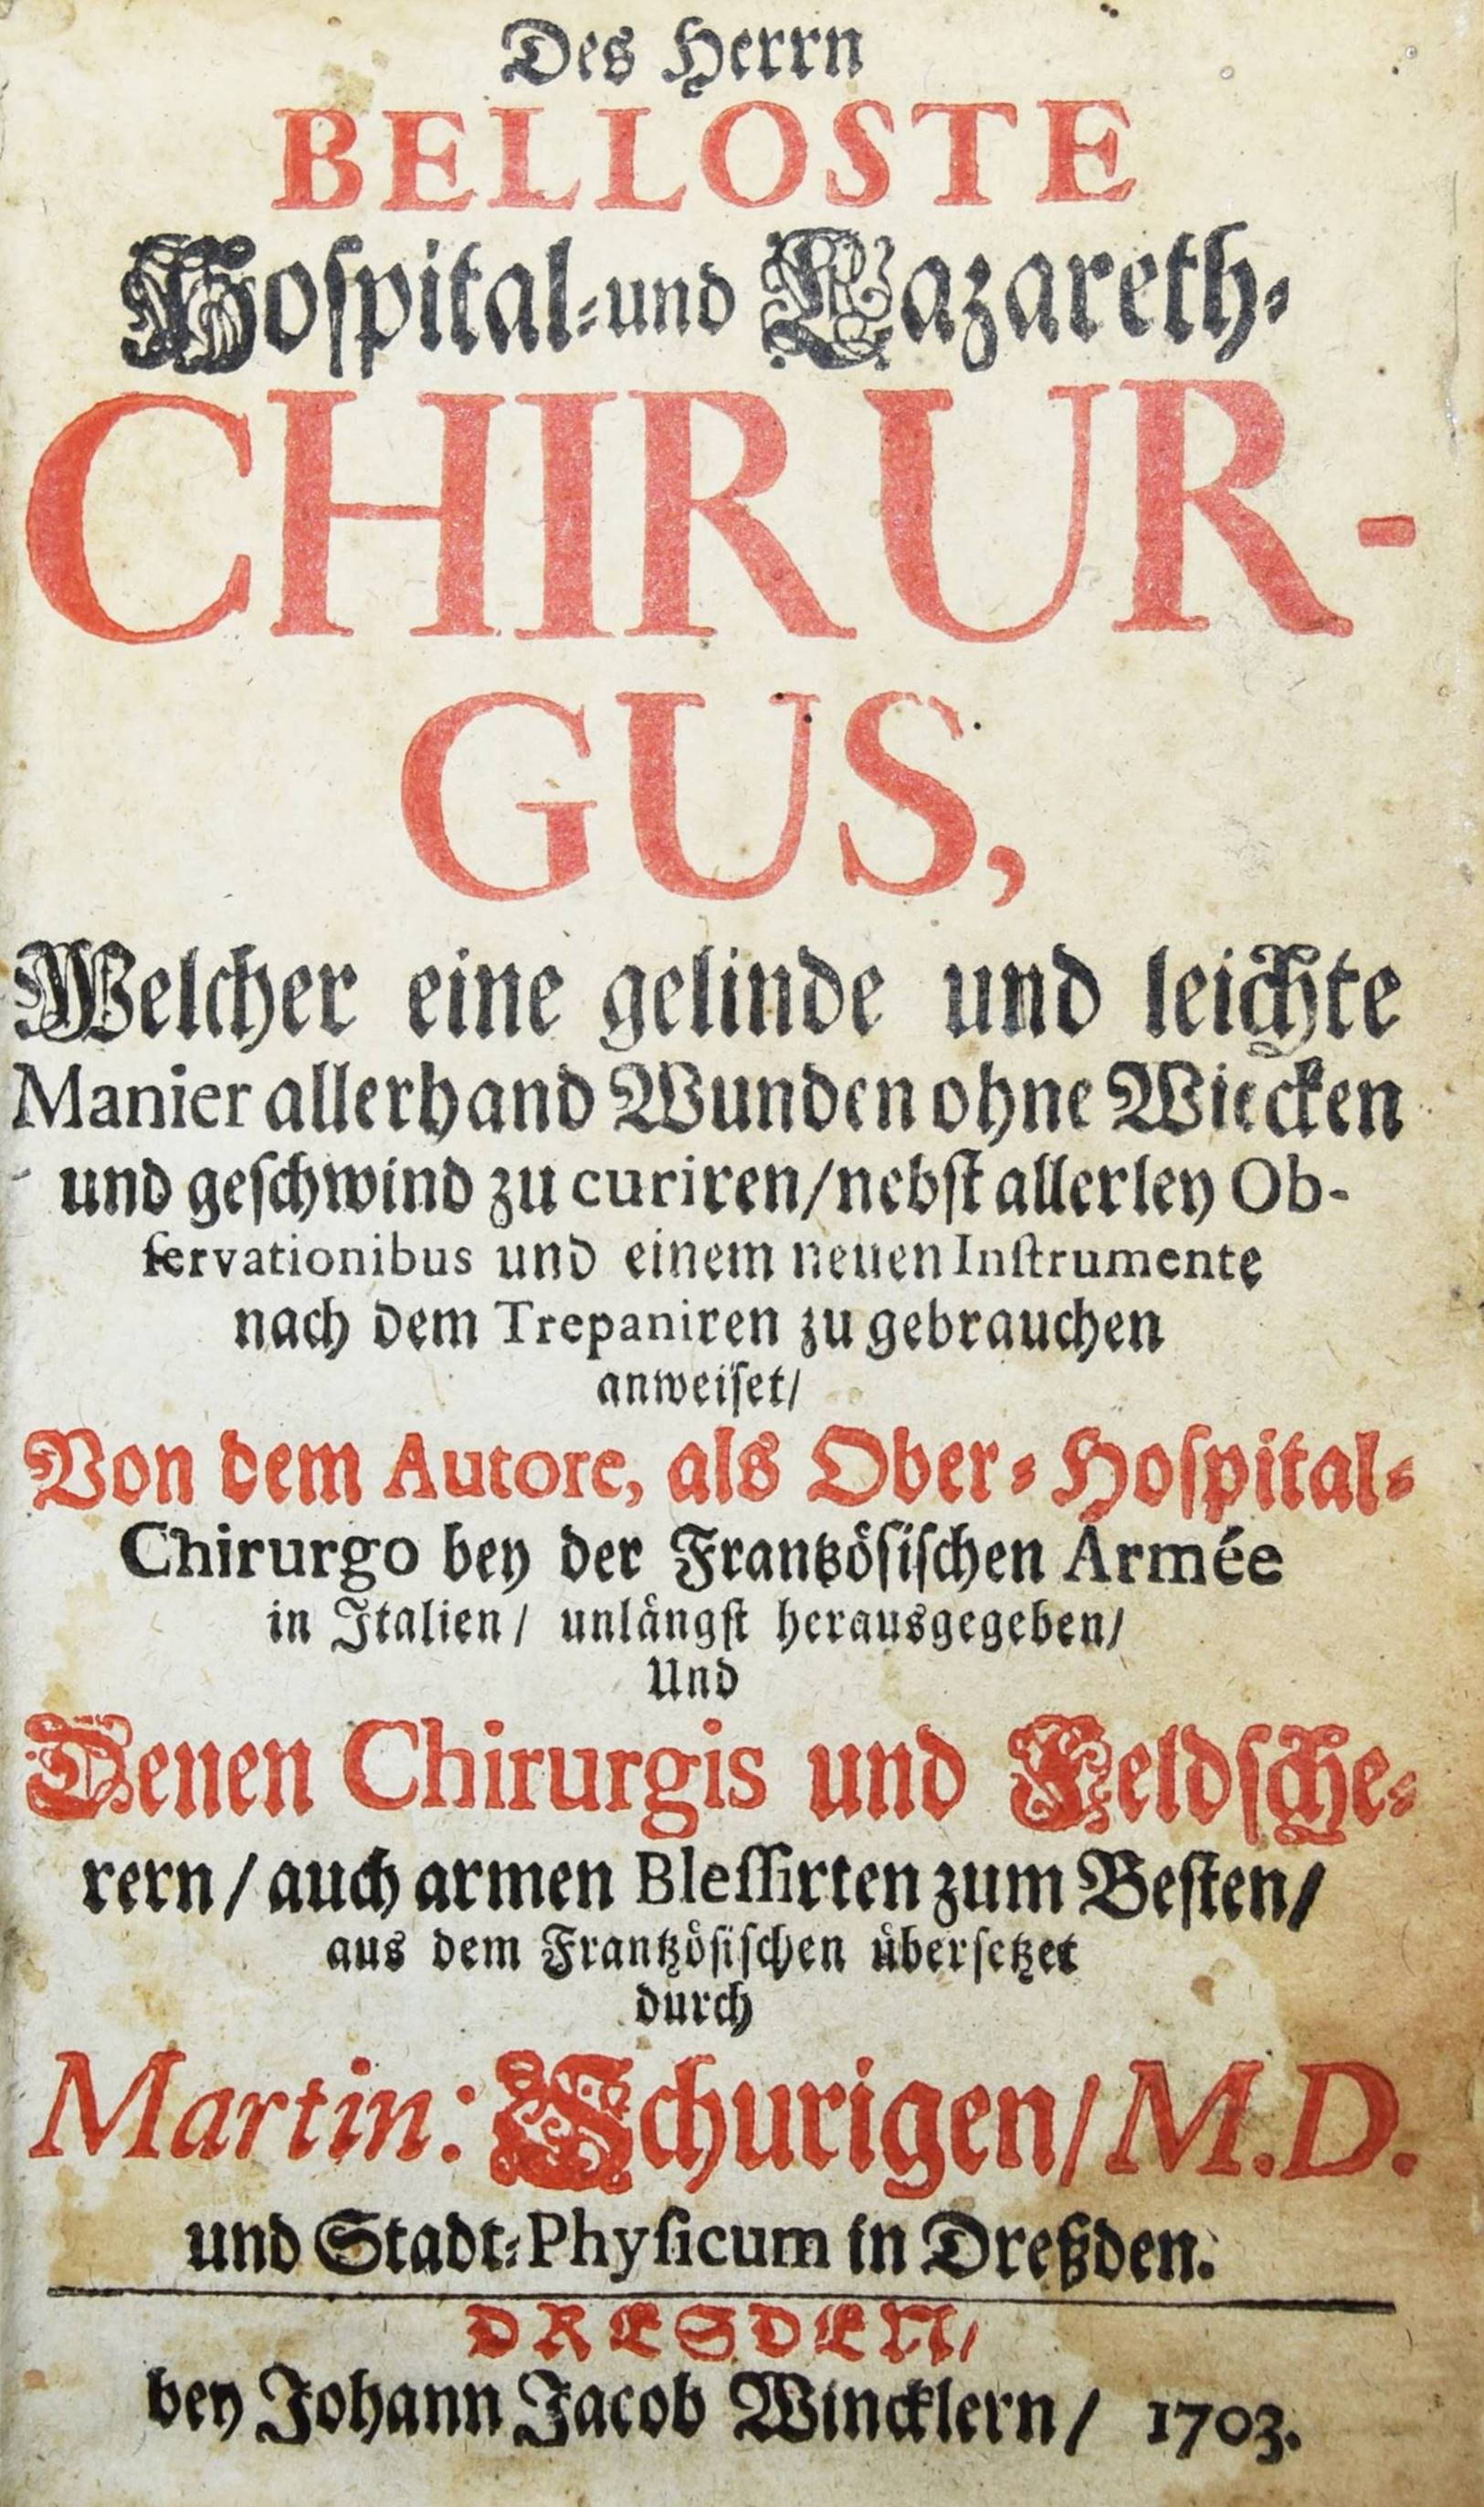 Des Herrn
BELLOSTE
Hospital-und Lazareth-
CHIRUR-
GUS,
Welcher eine gelinde und leichte
Manier allerhand Wunden ohne Wiecken
und geschwind zu curiren/nebst allerley Ob-
servationibus und einem neuen Instrumente
nach dem Trepaniren zu gebrauchen
anweiset/
Von dem Autore, als Ober-Hospital-
Chirurgo bey der Frantzösischen Armée
in Italien/ unlängst herausgegeben/
Und
Denen Chirurgis und Feldsche-
rern/auch armen Blessirten zum Besten/
aus dem Frantzösischen übersetzet
durch
Martin: Schurigen/M.D.
und Stadt-Physicum in Dreßden.
DRESDEN/
bey Johann Jacob Wincklern/ 1703.